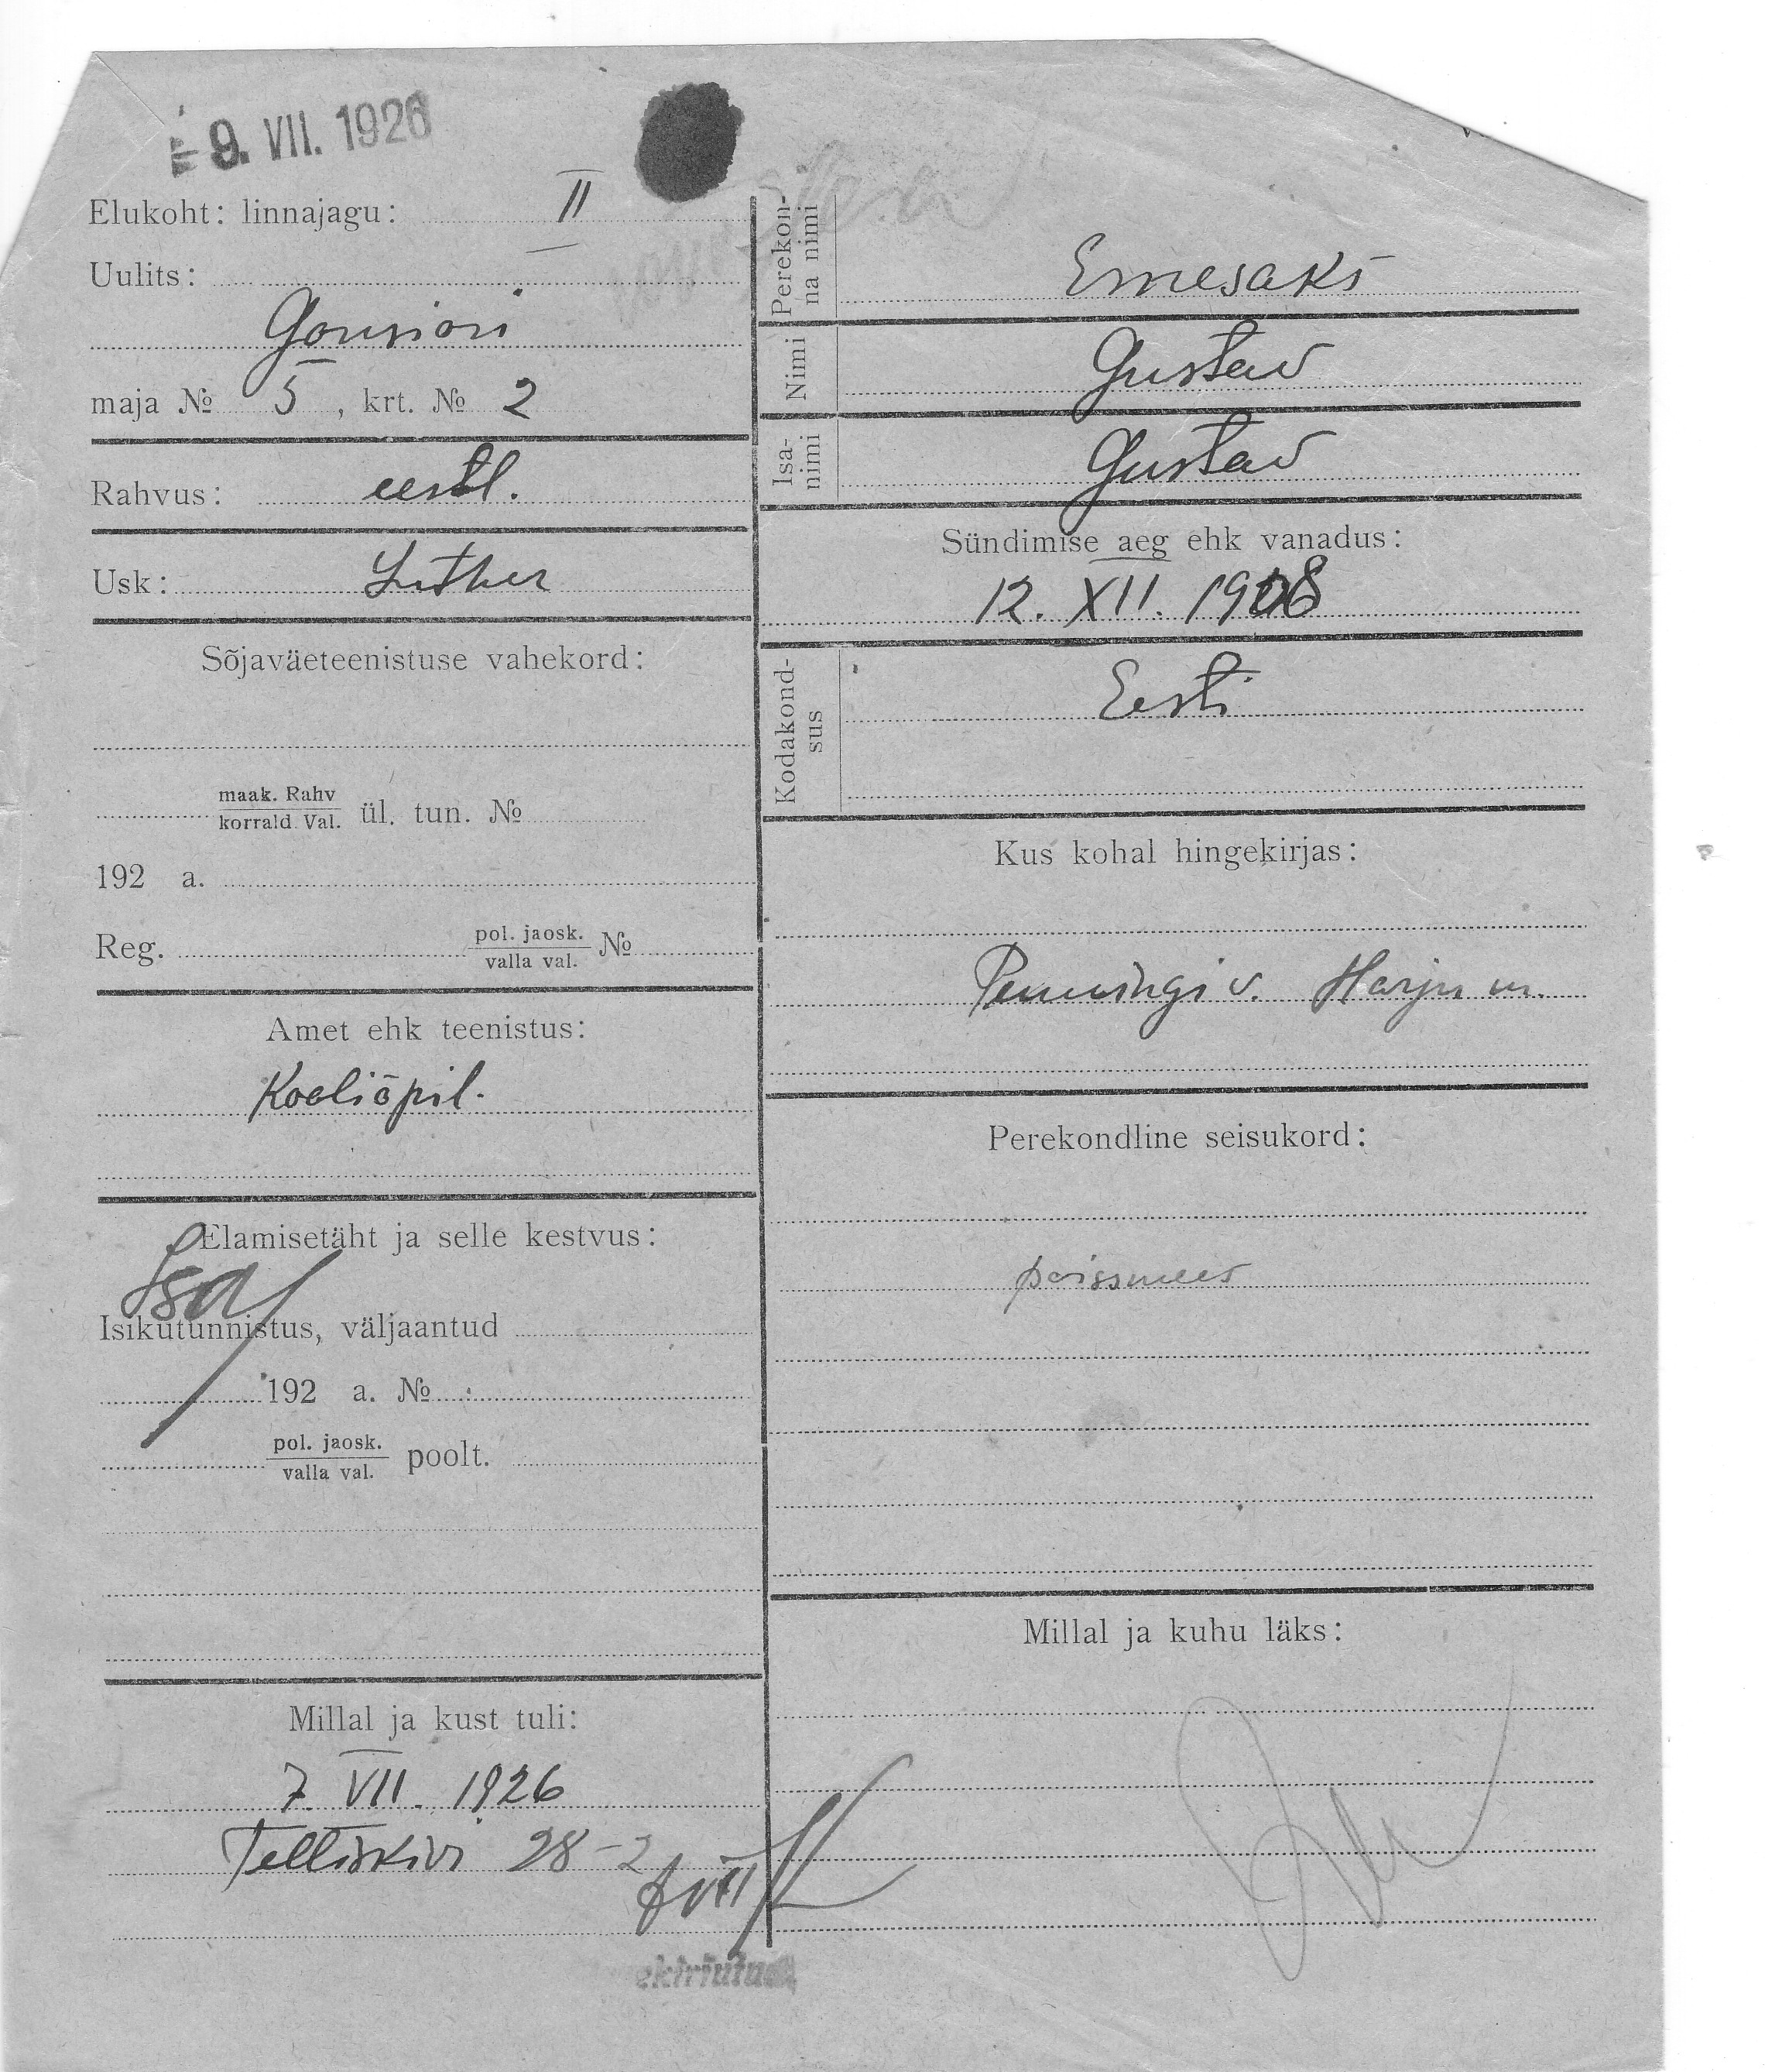 9. VII. 1926
Elukoht: linnajagu: II
Uulits:
Gonsiori
maja № 5, krt. № 2
Rahvus: eestl.
Usk: Luther
Sõjaväeteenistuse vahekord:
maak. Rahv
korrald. Val. ül. tun. №
192 a.
Reg. pol. jaosk.
valla val. №
Amet ehk teenistus:
Kooliõpil.
Elamisetäht ja selle kestvus:
Isikutunnistus, väljaantud
192 a. №
pol. jaosk.
valla val. poolt.
Millal ja kust tuli:
7. VII. 1926
Telliskivi 28-2
Perekon-
na nimi
Ernesaks
Nimi
Gustav
Isa-
nimi
Gustav
Sündimise aeg ehk vanadus:
12. XII. 1908
Kodakond-
sus
Eesti
Kus kohal hingekirjas:
Penningi v. Harju m.
Perekondline seisukord:
poissmees
Millal ja kuhu läks: